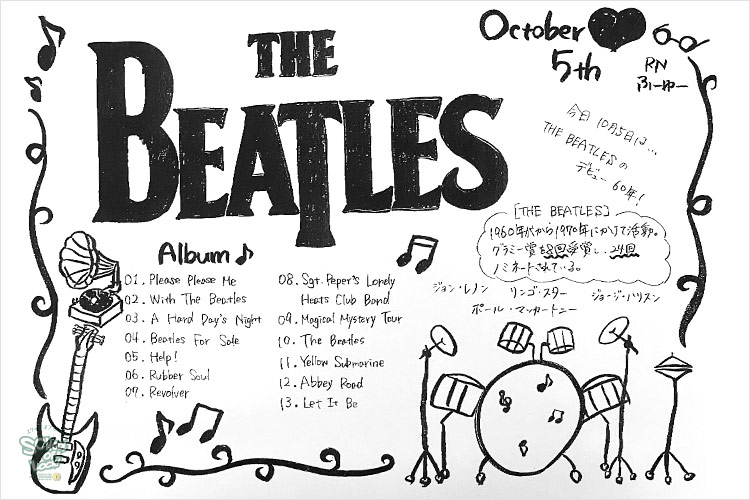 THE
BEATLES
October
5th
RN
ふーゆー
今日 10月5日は...
THE BEATLESの
デビュー 60年!
[THE BEATLES]
1960年代から1970年にかけて活動。
グラミー賞を8回受賞し、24回
ノミネートされている。
ジョン・レノン リンゴ・スター ジョージ・ハリスン
ポール・マッカートニー
Album
01. Please Please Me
02. With The Beatles
03. A Hard Day's Night
04. Beatles For Sale
05. Help!
06. Rubber Soul
07. Revolver
08. Sgt. Peper's Lonely
Heats Club Band
09. Magical Mystery Tour
10. The Beatles
11. Yellow Submarine
12. Abbey Road
13. Let It Be